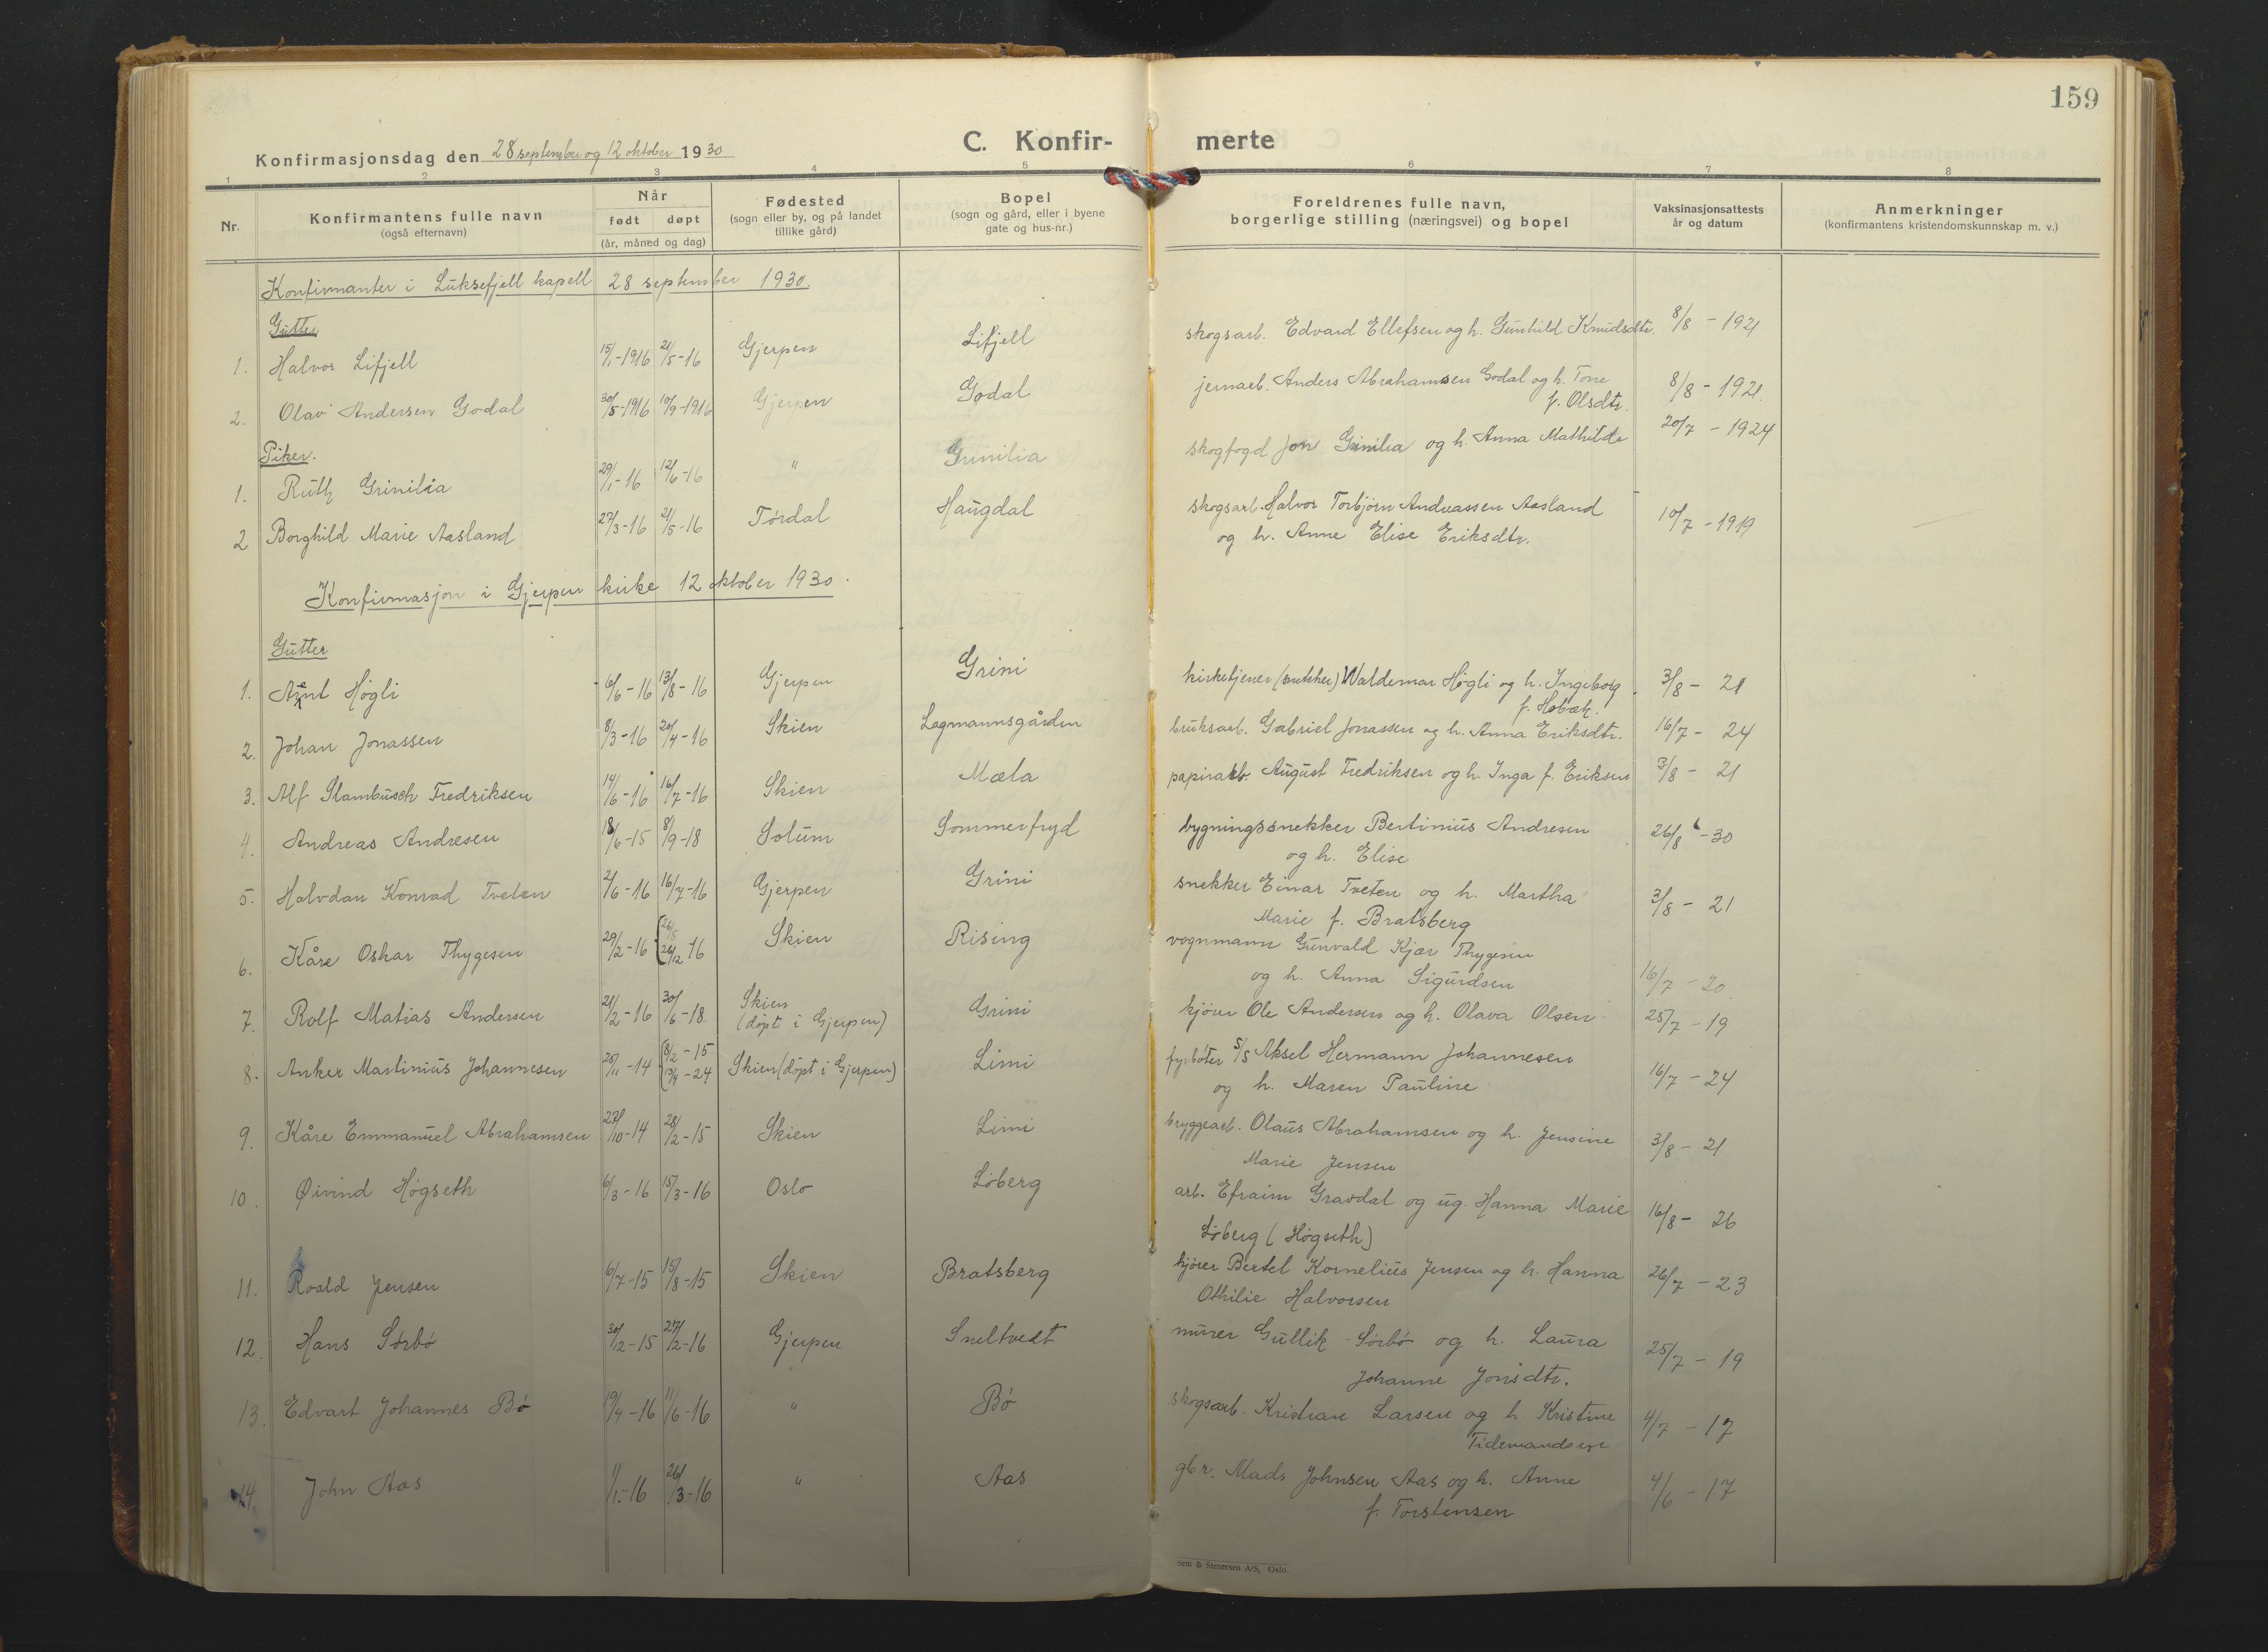 159
Konfirmasjonsdag den 28 september og 12 oktober 1930
C. Konfir- merte
1 2 3 4 5 6 7 8
Nr.
Konfirmantens fulle navn
(også efternavn)
Når
født døpt
(år, måned og dag)
Fødested
(sogn eller by, og på landet
tillike gård)
Bopel
(sogn og gård, eller i byene
gate og hus-nr.)
Foreldrenes fulle navn,
borgerlige stilling (næringsvei) og bopel
Vaksinasjonsattests
år og datum
Anmerkninger
(konfirmantens kristendomskunnskap m. v.)
Konfirmanter i Luksefjell kapell 28 september 1930.
Gutter
1. Halvor Lifjell 15/1-1916 21/5-16 Gjerpen Lifjell skogsarb. Edvard Ellefsen og h. Gunhild Knudsdtr. 8/8 - 1921
2. Olav Andersen Godal 30/5-1916 10/9-1916 Gjerpen Godal jernarb. Anders Abrahamsen Godal og h. Tone 8/8 - 1921.
f. Olsdtr.
Piker.
1. Ruth Grinilia 29/1-16 12/6-16 " Grinilia skogfogd Jon Grinilia og h. Anna Mathilde 20/7 - 1924
2 Borghild Marie Aasland 27/3-16 21/5-16 Tørdal Haugdal skogsarb. Halvor Torbjørn Andreassen Aasland 10/7 - 1919
og h. Anne Elise Eriksdtr.
Konfirmasjon i Gjerpen kirke 12 oktober 1930.
Gutter
1. Høgli 6/6-16 13/8-16 Gjerpen Grini kirketjener (snekker) Waldemar Høgli og h. Ingeborg 3/8 - 21
f. Hobæk.
2. Johan Jonassen 8/3-16 20/4-16 Skien Lagmannsgården bruksarb. Gabriel Jonassen og h. Anna Eriksdtr. 16/7 - 24
3. Alf Slambusch Fredriksen 14/6-16 16/7-16 Skien Mæla papirarb. August Fredriksen og h. Inga f. Eriksen 3/8 - 21
4. Andreas Andresen 18/6-15 8/9-18 Solum Sommerfryd bygningssnekker Bertinius Andresen 26/8-30
og h. Elise
5. Halvdan Konrad Tveten 2/6-16 16/7-16 Gjerpen Grini snekker Einar Tveten og h. Martha 3/8 - 21
Marie f. Bratsberg
6. Kåre Oskar Thygesen 29/2-16 26/12 16 Skien Rising vognmann Gunvald Kjær Thygesen
og h. Anna Sigurdsen 16/7 - 20.
7. Rolf Matias Andersen 21/2-16 30/6-18 Skien Grini kjører Ole Andersen og h. Olava Olsen 25/7 - 19
(døpt i Gjerpen)
8. Anker Martinius Johannesen 25/11-14 8/2-15 Skien (døpt i Gjerpen) Limi fyrbøter S/S Aksel Hermann Johannesen 16/7 - 24
13/4-24 og h. Maren Pauline
9. Kåre Emmanuel Abrahamsen 23/10-14 28/2-15 Skien Limi bryggearb. Olaus Abrahamsen og h. Jensine 3/8 - 21
Marie Jensen
10. Øivind Høgseth 6/3-16 15/3-16 Oslo Løberg arb. Efraim Gravdal og ug. Hanna Marie 16/8 - 26
Løberg (Høgseth)
11. Roald Jensen 6/7-15 15/8-15 Skien Bratsberg kjører Bertel Kornelius Jensen og h. Hanna 26/7 - 23
Othilie Halvorsen
12. Hans Sørbø 30/12-15 27/2-16 Gjerpen Sneltvedt murer Gullik Sørbø og h. Laura 25/7 - 19
Johanne Jonsdtr.
13. Edvart Johannes Bø 19/4-16 11/6-16 " Bø skogsarb. Kristian Larsen og h Kristine 4/7 - 17
14. John Aas 1/1-16 26/3-16 " Aas gbr. Mads Johnsen Aas og h. Anne 4/6 - 17
f. Torstensen
Sem & Stenersen A/S, Oslo.